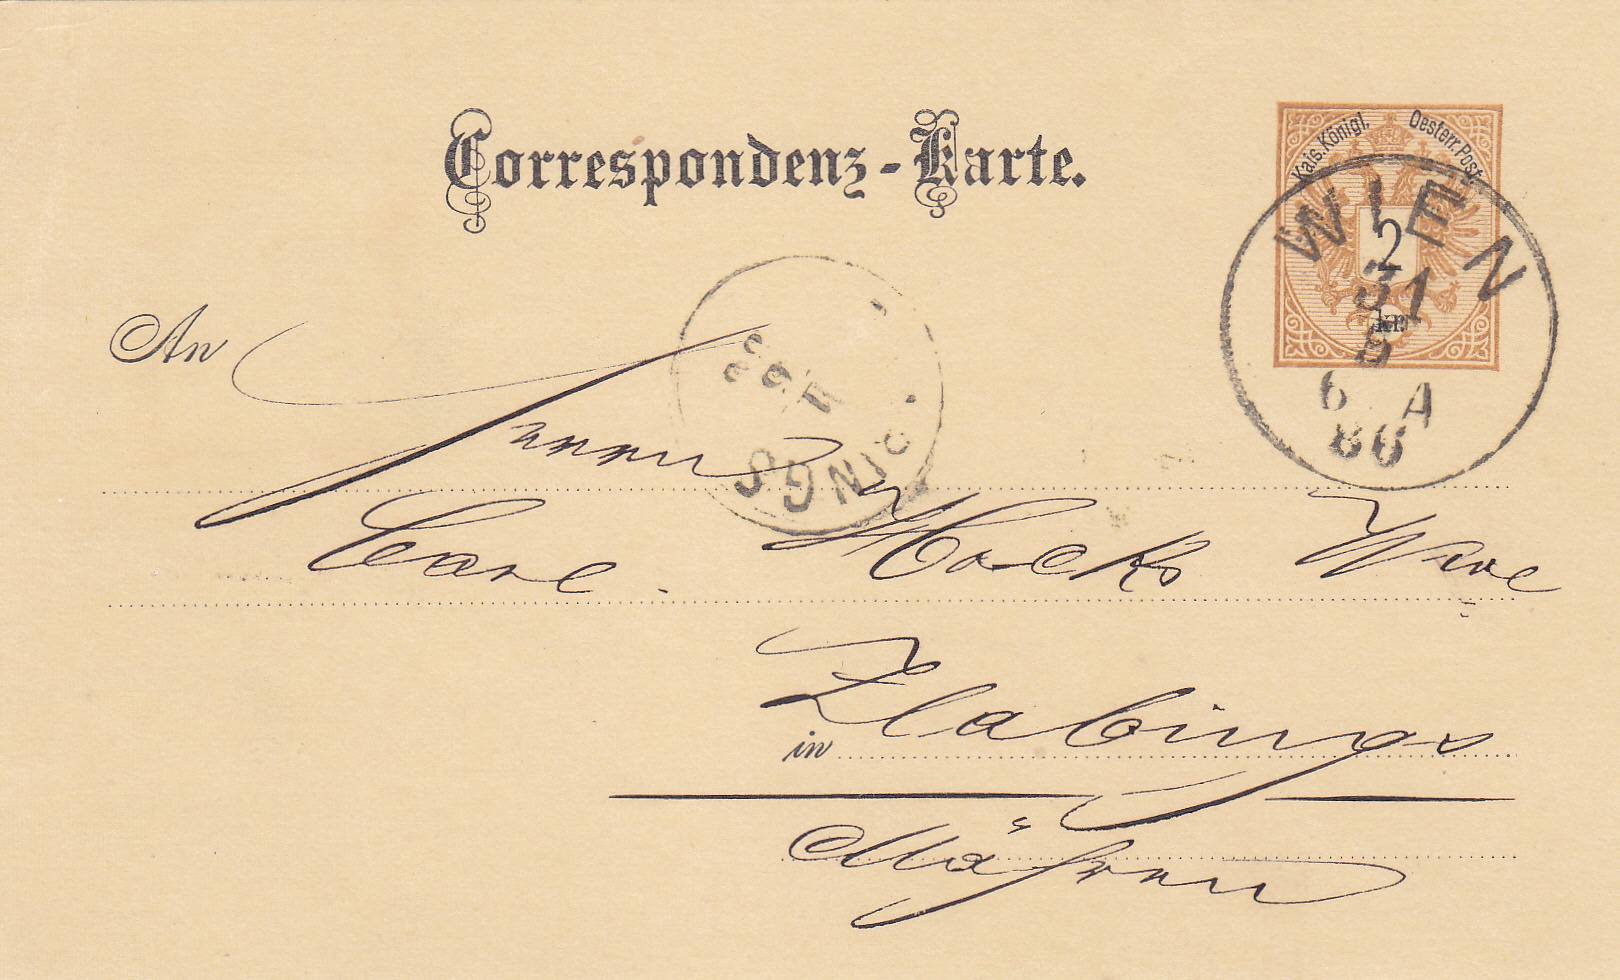 Correspondenz-Karte.
Kais. Königl. Oesterr. Post
2
kr.
WIEN
31
6 A
86
INGS
An
Herrn
Carl
in Zlabings
Mähren